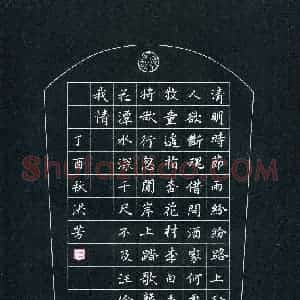 清明時節雨紛紛路上
人欲斷魂借問酒家何
牧童遙指杏花村李白
將欲行忽聞岸上踏歌
花潭水深千尺不及汪
我情
丁酉秋洪芳